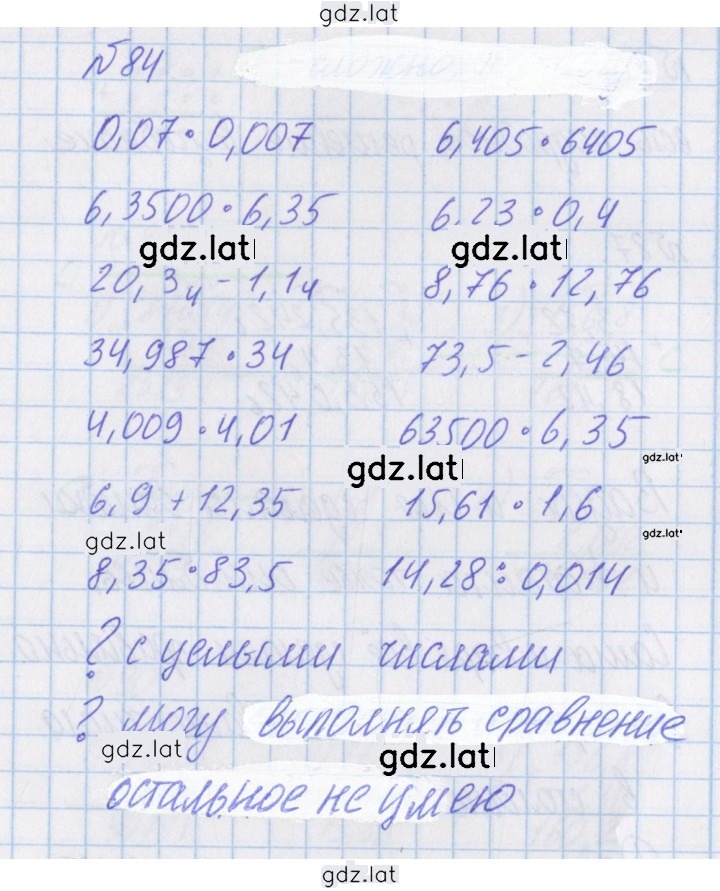 gdz.lat
№84
0,07 · 0,007 6,405 · 6405
6,3500 · 6,35 6.23 · 0,4
gdz.lat gdz.lat
20,34 - 1,14 8,76 · 12,76
34,987 · 34 73,5 - 2,46
4,009 · 4,01 63500 · 6,35
gdz.lat gdz.lat
6,9 + 12,35 15,61 · 1,6
gdz.lat gdz.lat
8,35 · 83,5 14,28 : 0,014
? с целыми числами
? могу выполнять сравнение
gdz.lat gdz.lat
остальное не умею
gdz.lat